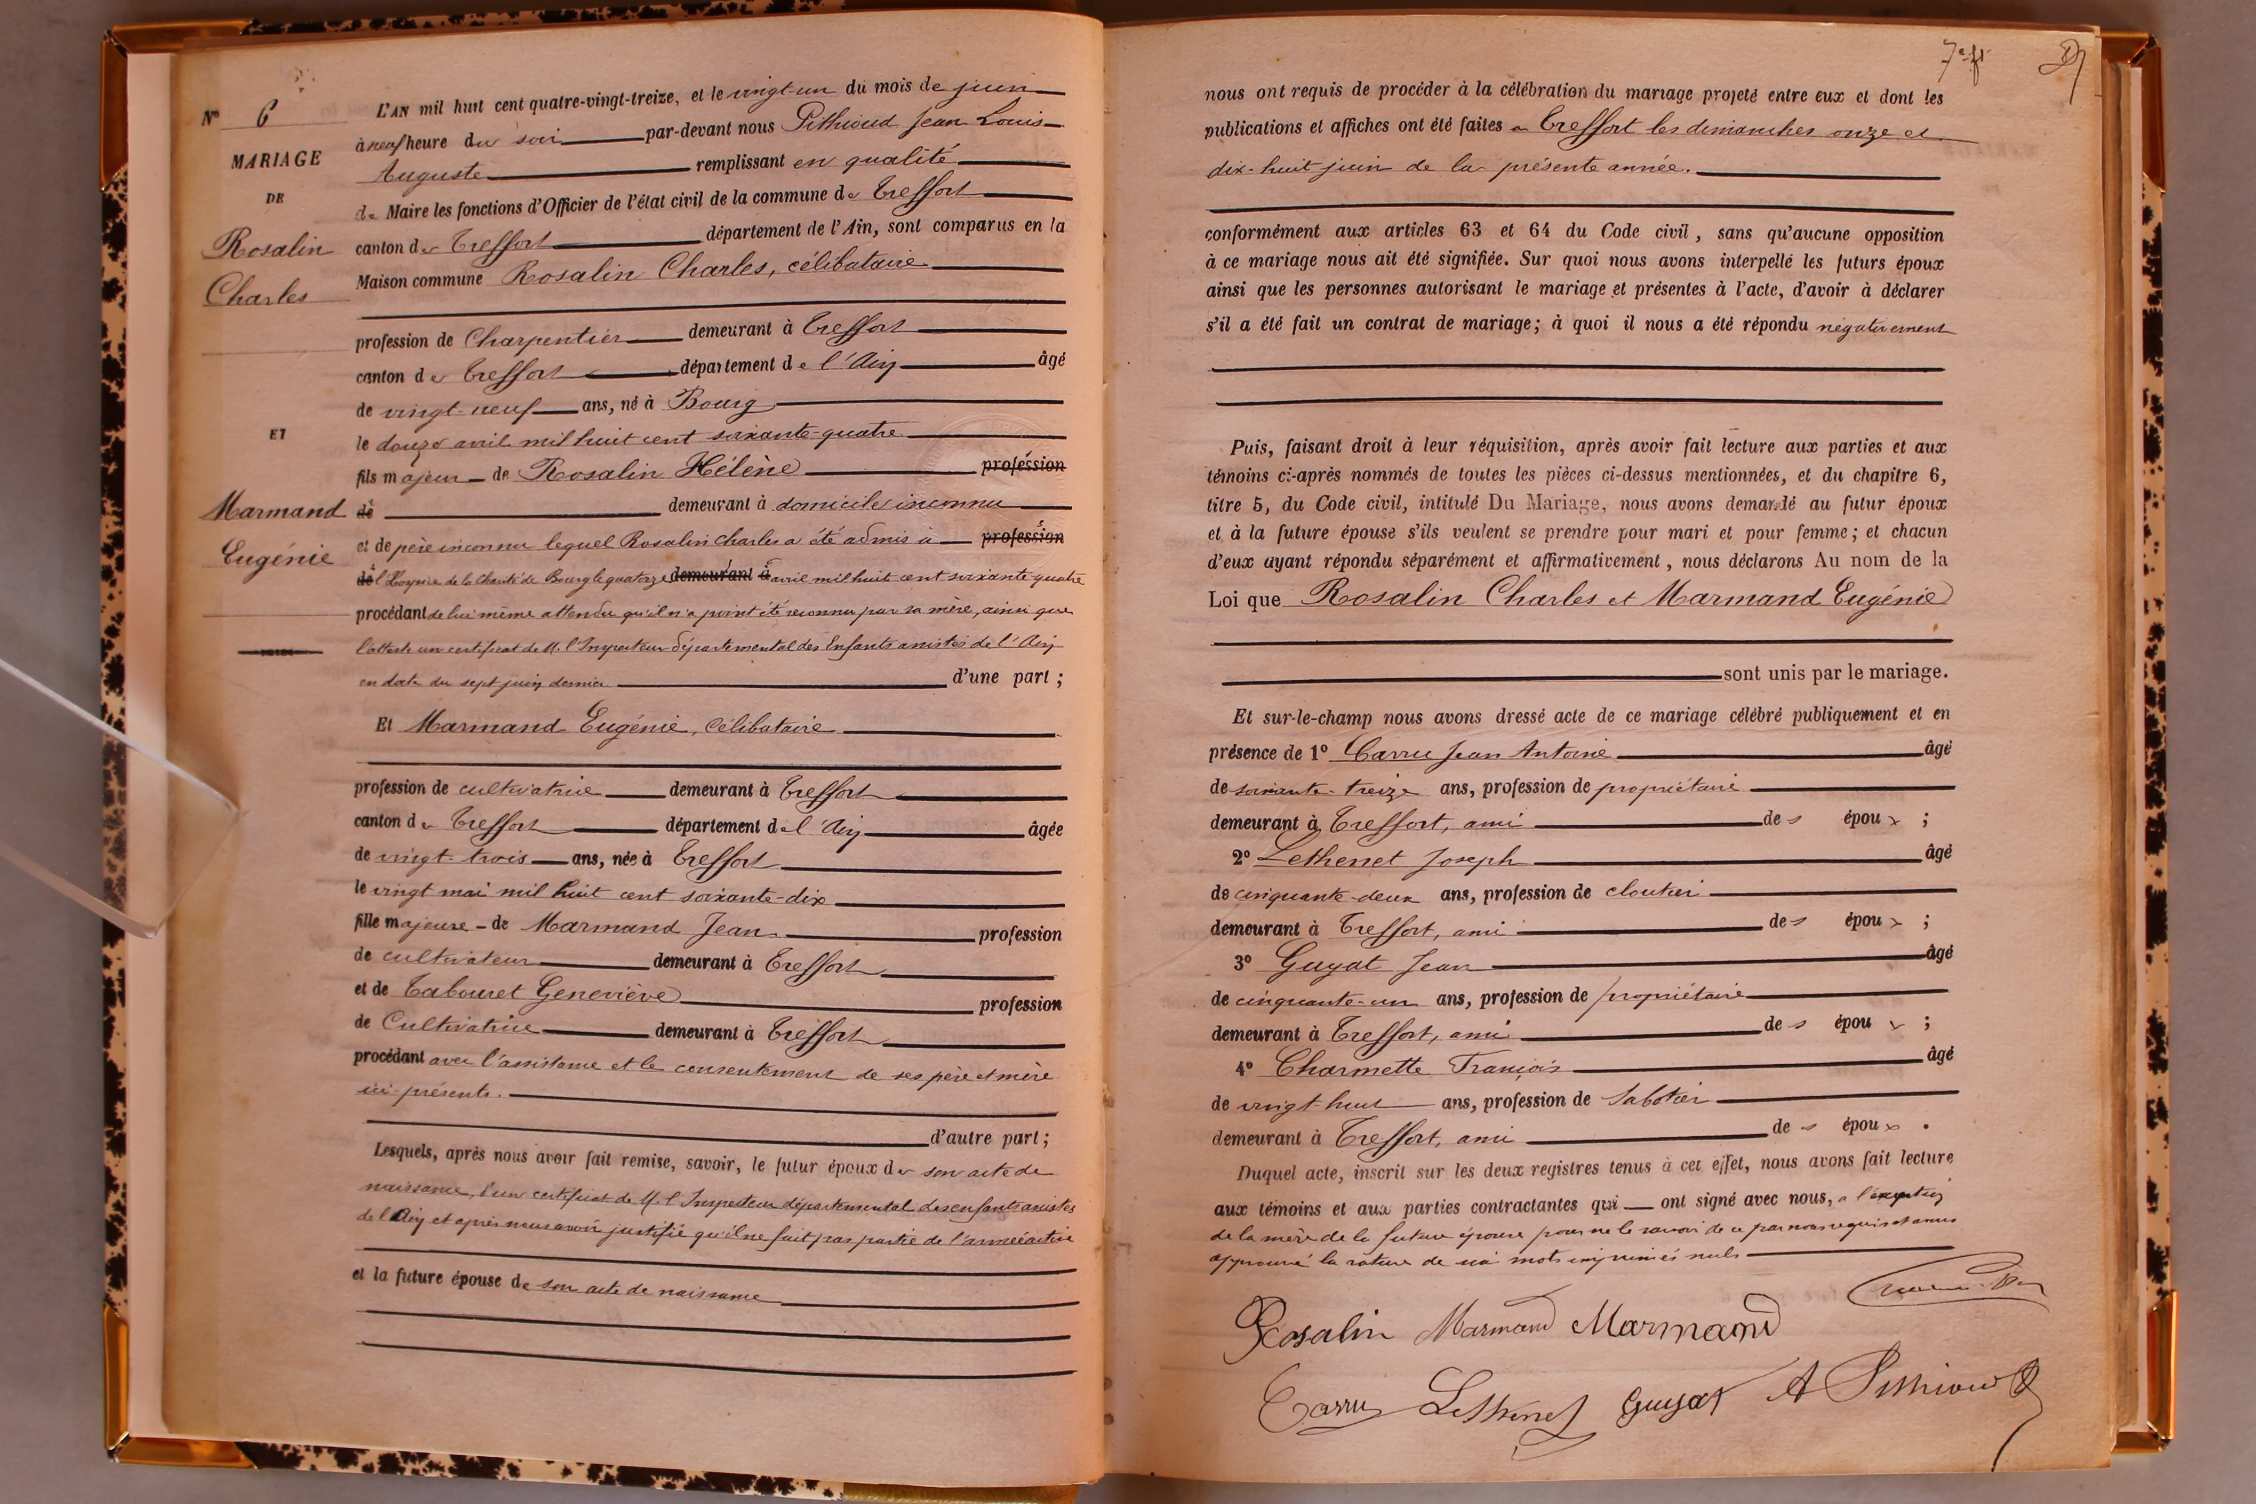 N° 6
MARIAGE
DE
Rosalin
Charles
ET
Marmand
Eugénie
L'AN mil huit cent quatre-vingt-treize, et le vingt-un du mois de juin
à neuf heure du soir par-devant nous Pithioud Jean Louis
Auguste remplissant en qualité
de Maire les fonctions d'Officier de l'état civil de la commune de Treffort
canton de Treffort département de l'Ain, sont comparus en la
Maison commune Rosalin Charles, célibataire
profession de Charpentier demeurant à Treffort
canton de Treffort département de l'Ain âgé
de vingt-neuf ans, né à Bourg
le douze avril mil huit cent soixante-quatre
fils majeur de Rosalin Hélène profession
de demeurant à domicile inconnu
et de père inconnu lequel Rosalin Charles a été admis à profession
de l'hospice de la Charité de Bourg le quatorze demeurant à avril mil huit cent soixante-quatre
procédant de lui même attendu qu'il n'a point été reconnu par sa mère, ainsi que
l'atteste un certificat de M. l'Inspecteur départemental des Enfants assistés de l'Ain
en date du sept juin dernier d'une part ;
Et Marmand Eugénie, célibataire
profession de cultivatrice demeurant à Treffort
canton de Treffort département de l'Ain âgée
de vingt-trois ans, née à Treffort
le vingt mai mil huit cent soixante-dix
fille majeure de Marmand Jean profession
de cultivateur demeurant à Treffort
et de Tabouret Geneviève profession
de Cultivatrice demeurant à Treffort
procédant avec l'assistance et le consentement de ses père et mère
ici présents.
d'autre part ;
Lesquels, après nous avoir fait remise, savoir, le futur époux de son acte de
naissance, d'un certificat de M. l'Inspecteur départemental des enfants assistés
de l'Ain et après nous avoir justifié qu'il ne fait pas partie de l'armée active
et la future épouse de son acte de naissance
7e ft
nous ont requis de procéder à la célébration du mariage projeté entre eux et dont les
publications et affiches ont été faites à Treffort les dimanches onze et
dix-huit juin de la présente année.
conformément aux articles 63 et 64 du Code civil, sans qu'aucune opposition
à ce mariage nous ait été signifiée. Sur quoi nous avons interpellé les futurs époux
ainsi que les personnes autorisant le mariage et présentes à l'acte, d'avoir à déclarer
s'il a été fait un contrat de mariage ; à quoi il nous a été répondu négativement
Puis, faisant droit à leur réquisition, après avoir fait lecture aux parties et aux
témoins ci-après nommés de toutes les pièces ci-dessus mentionnées, et du chapitre 6,
titre 5, du Code civil, intitulé Du Mariage, nous avons demandé au futur époux
et à la future épouse s'ils veulent se prendre pour mari et pour femme ; et chacun
d'eux ayant répondu séparément et affirmativement, nous déclarons Au nom de la
Loi que Rosalin Charles et Marmand Eugénie
sont unis par le mariage.
Et sur-le-champ nous avons dressé acte de ce mariage célébré publiquement et en
présence de 1° Carru Jean Antoine âgé
de soixante-treize ans, profession de propriétaire
demeurant à Treffort, ami des époux ;
2° Lethenet Joseph âgé
de cinquante-deux ans, profession de cloutier
demeurant à Treffort, ami des époux ;
3° Guyat Jean âgé
de cinquante-un ans, profession de propriétaire
demeurant à Treffort, ami des époux ;
4° Charmette François âgé
de vingt-huit ans, profession de sabotier
demeurant à Treffort, ami des époux .
Duquel acte, inscrit sur les deux registres tenus à cet effet, nous avons fait lecture
aux témoins et aux parties contractantes qui ont signé avec nous, à l'exception
de la mère de la future épouse pour ne le savoir de ce par nous requis et
approuvé la rature de mots imprimés nuls
Rosalin Marmand Marmand
Carru Lethenet Guyat A Pithioud